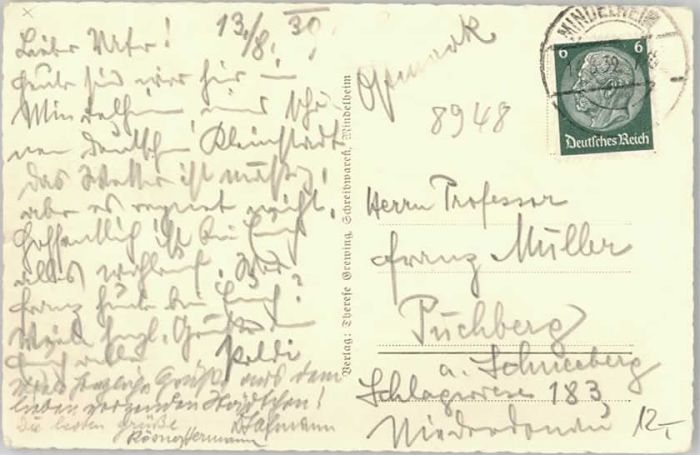 13./8. 39
Lieber Vater!
Heute sind wir hier in
Mindelheim, einer schö-
nen deutschen Kleinstadt.
Das Wetter ist mäßig,
aber es regnet nicht.
Hoffentlich ist bei Euch
alles wohlauf. War
Franz heute bei Euch?
Viele herzl. Grüße
Euch alle Poldi
Viele herzliche Grüße aus dem
lieben Städtchen!
Die besten Grüße
Hermann
Verlag: Therese Grewing, Schreibwaren, Mindelheim
Ostmark
8948
MINDELHEIM
39
6 6
Deutsches Reich
Herrn Professor
Franz Müller
Puchberg
a. Schneeberg
Schlagwiese 183
Niederdonau
12,-